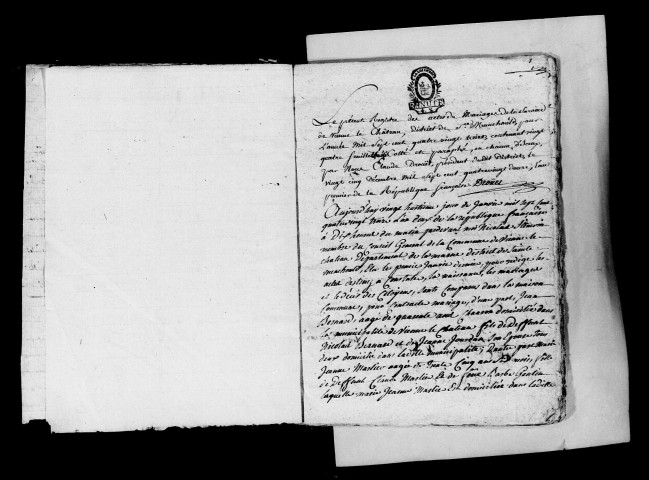 Le présent Registre des actes de Mariages de la commune
de Vienne le Château, district de Ste Menehould, pour
l'année mil sept cent quatre vingt treize, contenant vingt
quatre feuillets Cotté et paraphé, en chacun d'iceux,
par Nous Claude Drouet, président dudit District, le
vingt cinq Décembre mil sept cent quatrevingt douze, l'an
premier de la République françoise. Drouet
Aujourd'huy vingt huitieme jour de Janvier mil sept cent
quatre vingt treize L'an deux de la republique françoise
à Dix heures du matin pardevant moi Nicolas
membre du Conseil General de la Commune de Vienne le
chateau Département de la marne district de Sainte
menehould, Elu le premier Janvier dernier, pour rediger les
actes destinés a Constater, la naissance, les mariages
et le décès des Citoyens, sont Comparus dans la maison
Commune, pour Contracter mariage, d'une part, Jean
Bernard agé de quarante ans domicilié dans
la municipalité de Vienne le chateau fils de deffunt
Nicolas Bernard et de Jeanne Jourdan son Epouse tous
deux domiciliés dans laditte municipalité; Dautre part Marie
Jeanne Maslier agée de trente Cinq ans fille
de deffunt Claude Maslier et de Barbe
laquelle marie Jeanne Maslier Est domiciliée dans laditte